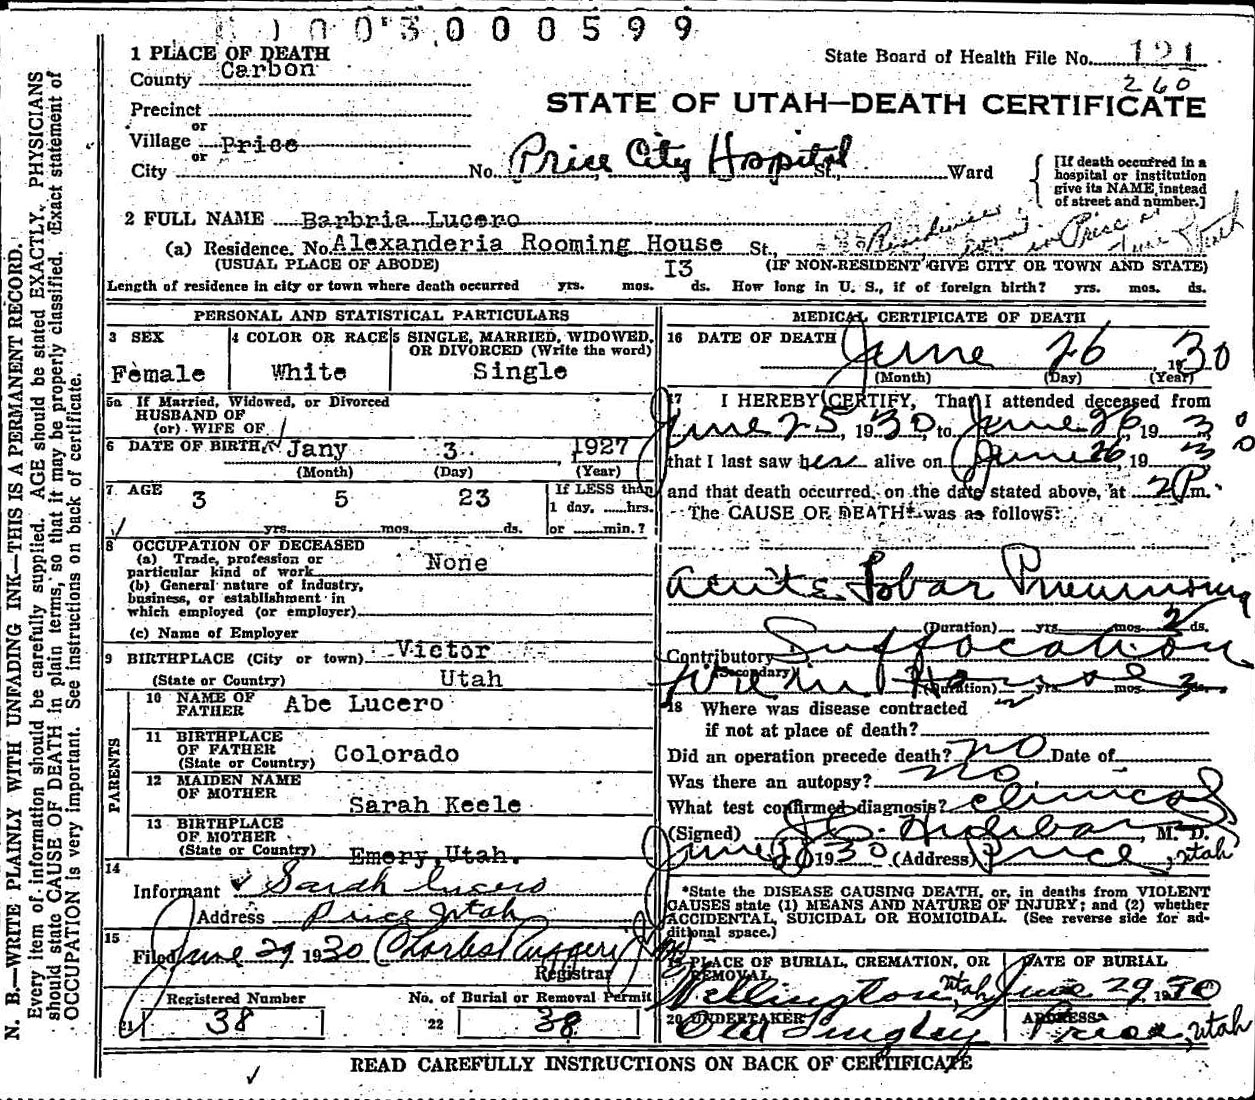 1003000599
1 PLACE OF DEATH
State Board of Health File No. 121
County Carbon
260
STATE OF UTAH—DEATH CERTIFICATE
Precinct
or
Village Price
or
City No. Price City Hospital St., Ward
[If death occurred in a hospital or institution give its NAME instead of street and number.]
2 FULL NAME Barbria Lucero
(a) Residence. No. Alexanderia Rooming House St., Residence in Price
(USUAL PLACE OF ABODE) (IF NON-RESIDENT GIVE CITY OR TOWN AND STATE)
Length of residence in city or town where death occurred yrs. mos. I3 ds. How long in U. S., if of foreign birth? yrs. mos. ds.
PERSONAL AND STATISTICAL PARTICULARS
3 SEX
Female
4 COLOR OR RACE
White
5 SINGLE, MARRIED, WIDOWED, OR DIVORCED (Write the word)
Single
5a If Married, Widowed, or Divorced
HUSBAND OF
(or) WIFE OF
6 DATE OF BIRTH Jany 3 1927
(Month) (Day) (Year)
7 AGE 3 5 23
yrs. mos. ds.
If LESS than
1 day, ......hrs.
or ......min.?
8 OCCUPATION OF DECEASED
(a) Trade, profession or
particular kind of work None
(b) General nature of industry,
business, or establishment in
which employed (or employer)
(c) Name of Employer
9 BIRTHPLACE (City or town) Victor
(State or Country) Utah
PARENTS
10 NAME OF FATHER Abe Lucero
11 BIRTHPLACE OF FATHER (State or Country) Colorado
12 MAIDEN NAME OF MOTHER Sarah Keele
13 BIRTHPLACE OF MOTHER (State or Country) Emery, Utah.
14
Informant Sarah Lucero
Address Price Utah
15
Filed June 29 1930 Charles Ruggeri
Registrar
Registered Number No. of Burial or Removal Permit
21 38 22 38
MEDICAL CERTIFICATE OF DEATH
16 DATE OF DEATH June 26 1930
(Month) (Day) (Year)
17 I HEREBY CERTIFY, That I attended deceased from
June 25, 1930, to June 26, 1930
that I last saw her alive on June 26, 1930
and that death occurred, on the date stated above, at 2 P m.
The CAUSE OF DEATH* was as follows:
Acute Lobar Pneumonia
(Duration) yrs. mos. 2 ds.
Contributory Suffocation
(Secondary)
Fire in House
(Duration) yrs. mos. 3 ds.
18 Where was disease contracted
if not at place of death?
Did an operation precede death? no Date of
Was there an autopsy? no
What test confirmed diagnosis? clinical
(Signed) M. D.
June 28 1930 (Address) Price, Utah
*State the DISEASE CAUSING DEATH, or, in deaths from VIOLENT
CAUSES state (1) MEANS AND NATURE OF INJURY; and (2) whether
ACCIDENTAL, SUICIDAL OR HOMICIDAL. (See reverse side for ad-
ditional space.)
19 PLACE OF BURIAL, CREMATION, OR REMOVAL
Wellington, Utah
DATE OF BURIAL
June 29, 1930
20 UNDERTAKER
ADDRESS
Price, Utah
READ CAREFULLY INSTRUCTIONS ON BACK OF CERTIFICATE
N. B.—WRITE PLAINLY WITH UNFADING INK—THIS IS A PERMANENT RECORD.
Every item of information should be carefully supplied. AGE should be stated EXACTLY. PHYSICIANS
should state CAUSE OF DEATH in plain terms, so that it may be properly classified. Exact statement of
OCCUPATION is very important. See instructions on back of certificate.